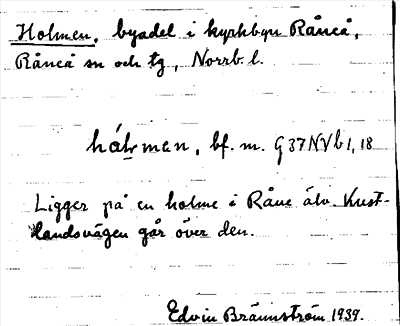 Holmen, byadel i kyrkbyn Råneå,
Råneå sn och tg, Norrb. l.
hálmen, bf. m. G 37 NV b 1, 18
Ligger på en holme i Råne älv. Kust-
landsvägen går över den.
Edvin Brännström 1939.